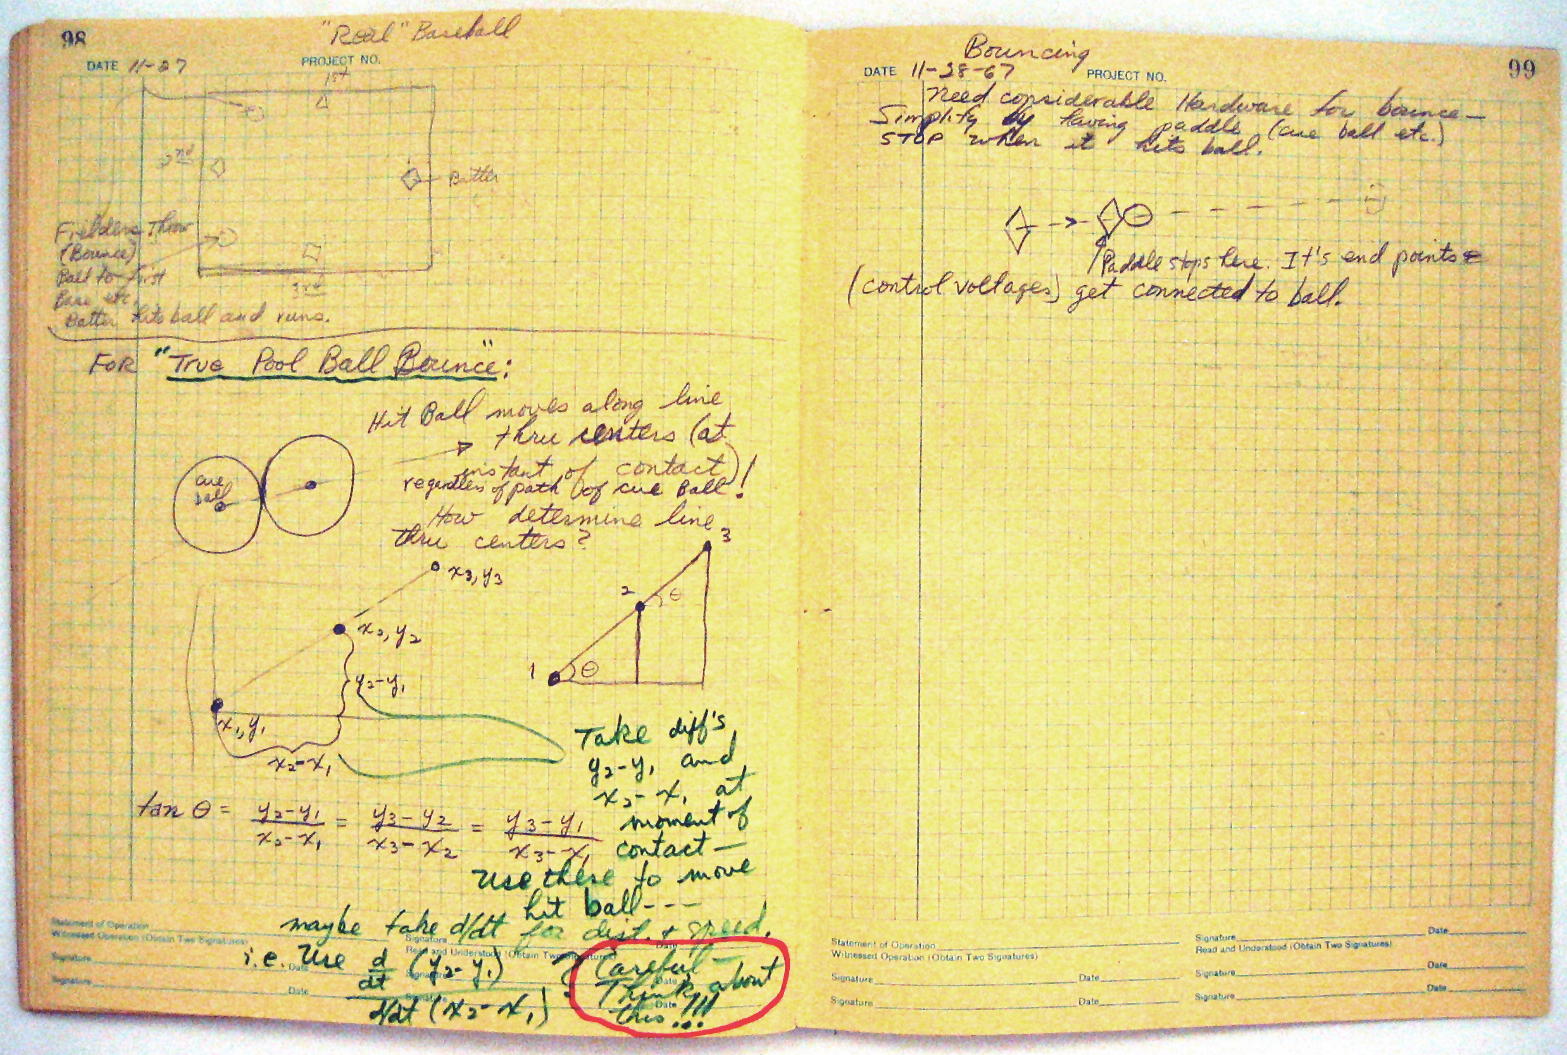 98
"Real" Baseball
DATE 11-27
PROJECT NO.
1st
2nd
Batter
Fielders Throw
(Bounce)
Ball to first
Base etc.
Batter hits ball and runs.
3rd
FOR "True Pool Ball Bounce":
Hit Ball moves along line
thru centers (at
instant of contact)
regardless of path of cue Ball!
cue
ball
How determine line
thru centers?
x3, y3
x2, y2
y2-y1
x1, y1
x2-x1
3
2
θ
1
θ
Take diff's
y2-y1 and
x2-x1 at
moment of
contact—
Use these to move
hit ball---
tan θ = y2-y1 / x2-x1 = y3-y2 / x3-x2 = y3-y1 / x3-x1
maybe take d/dt for dist. + speed.
i.e. Use d/dt (y2-y1) / d/dt (x2-x1) ?
Careful—
Think about
this!!!
Statement of Operation
Signature Date
Witnessed Operation (Obtain Two Signatures)
Read and Understood (Obtain Two Signatures)
Signature Date Signature Date
Signature Date Signature Date
Bouncing
99
DATE 11-28-67
PROJECT NO.
Need considerable Hardware for bounce—
Simplify by having paddle (cue ball etc.)
STOP when it hits ball.
Paddle stops here. It's end points
(control voltages) get connected to ball.
Statement of Operation
Signature Date
Witnessed Operation (Obtain Two Signatures)
Read and Understood (Obtain Two Signatures)
Signature Date Signature Date
Signature Date Signature Date